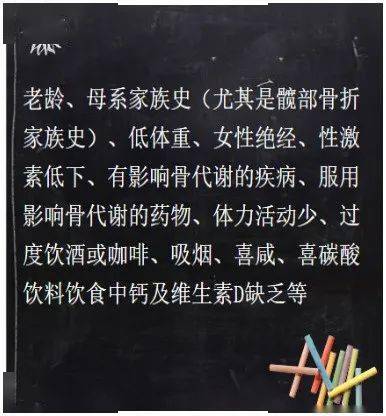 老龄、母系家族史（尤其是髋部骨折
家族史）、低体重、女性绝经、性激
素低下、有影响骨代谢的疾病、服用
影响骨代谢的药物、体力活动少、过
度饮酒或咖啡、吸烟、喜咸、喜碳酸
饮料饮食中钙及维生素D缺乏等